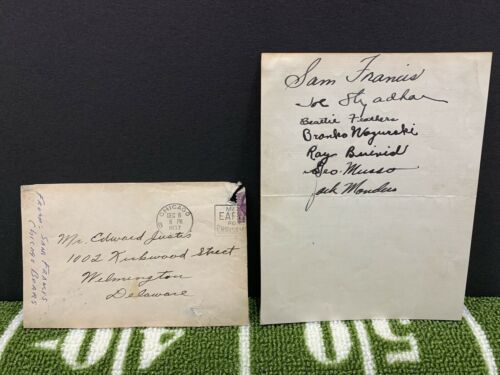 From Sam Francis
Chicago Bears
CHICAGO
DEC 8
PM
1937
EARLY
Mr. Edward Justis
1002 Kirkwood Street
Wilmington
Delaware
Sam Francis
Joe Stydahar
Beattie Feathers
Bronko Nagurski
Ray Buivid
Geo. Musso
Jack Manders
40